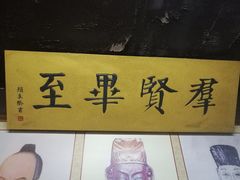 羣賢畢至